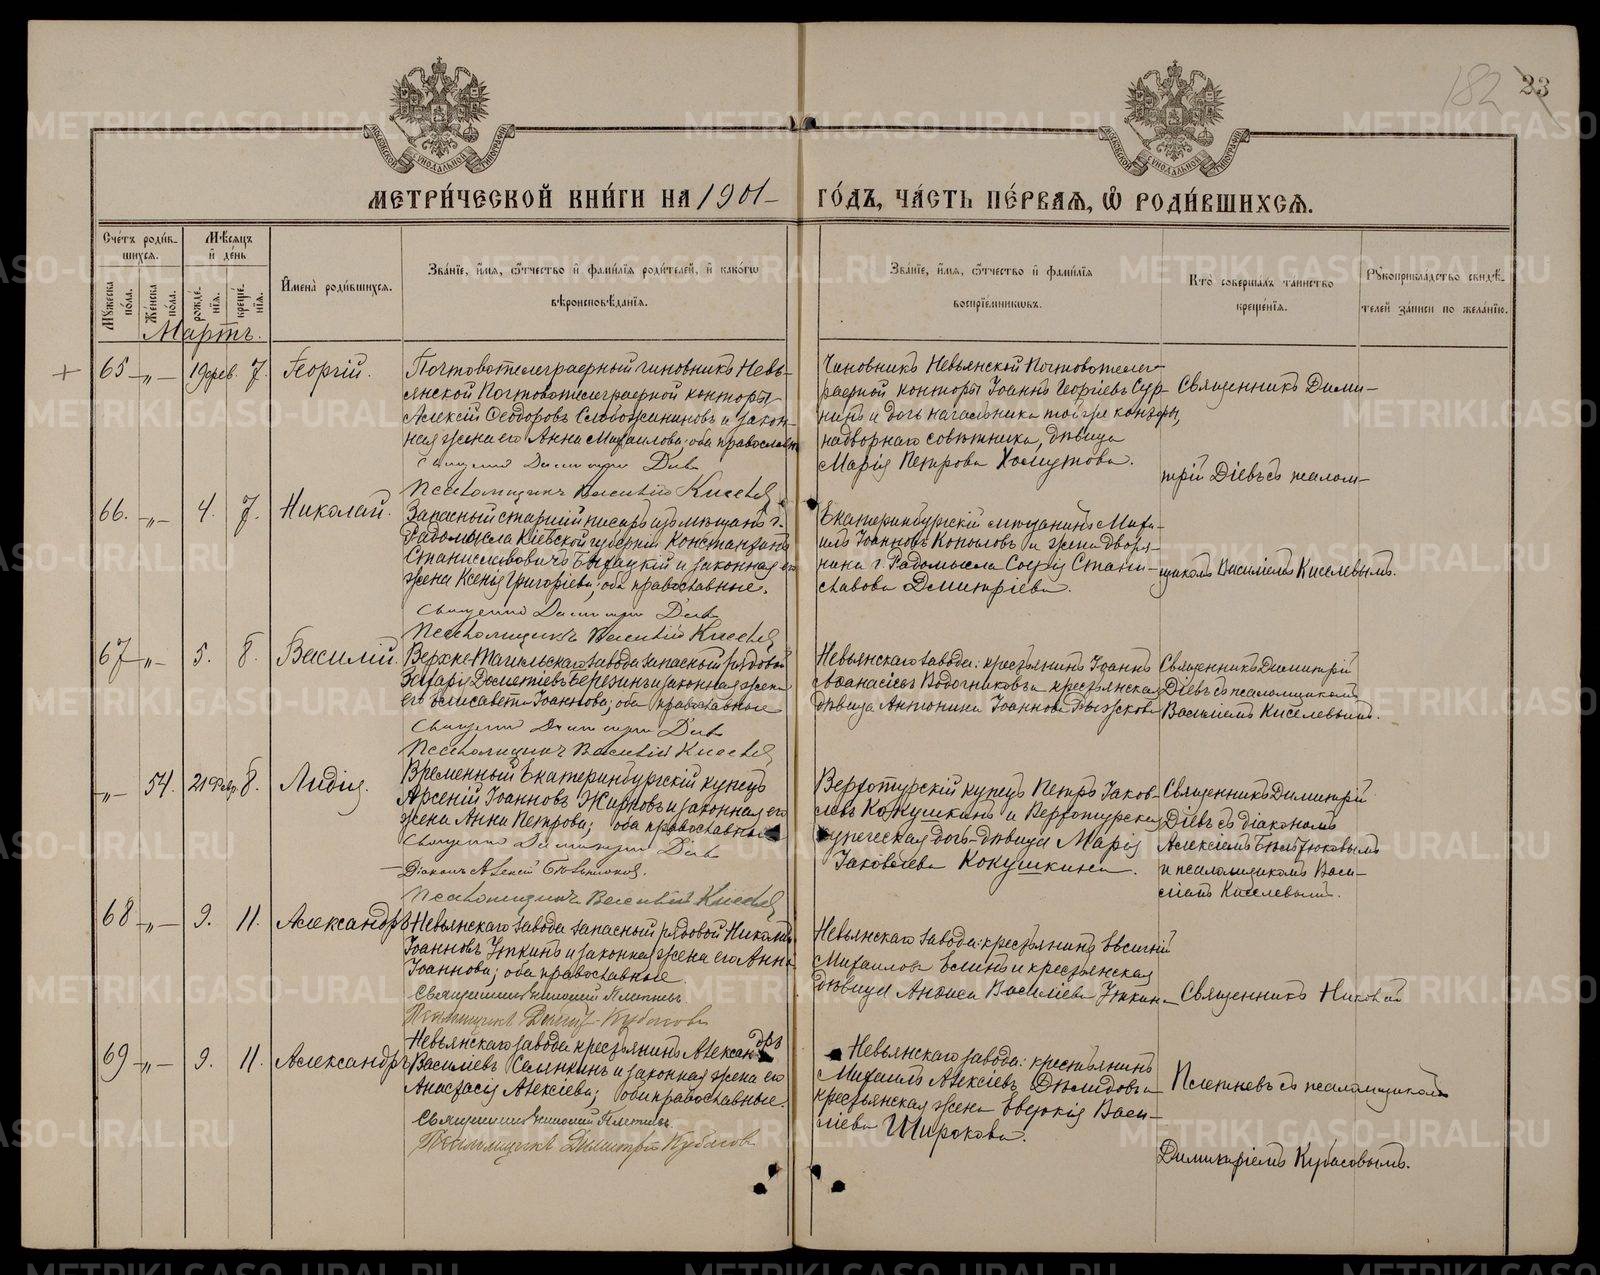 182 23
МОСКОВСКОЙ СУНОДАЛЬНОЙ ТИПОГРАФІИ
МОСКОВСКОЙ СУНОДАЛЬНОЙ ТИПОГРАФІИ
МЕТРИ́ЧЕСКОЙ КНИ́ГИ НА 1901 ГО́ДЪ, ЧА́СТЬ ПЕ́РВАѦ, Ѽ РОДИ́ВШИХСѦ.
Сче́тъ роди́в-
шихся.
Му́жеска по́ла.
Же́нска по́ла.
Мѣ́сяцъ
и҆ де́нь
рожде́нїя.
креще́нїя.
И҆мена̀ роди́вшихся.
Зва́нїе, и҆́мя, ѻ҆́тчество и҆ фами́лїя роди́телей, и҆ како́гѡ
вѣроисповѣ́данїя.
Зва́нїе, и҆́мя, ѻ҆́тчество и҆ фами́лїя
воспрїе́мниковъ.
Кто̀ соверша́лъ та́инство
креще́нїя.
Рꙋкоприкла́дство свидѣ́-
телей за́писи по жела́нїю.
Мартъ.
65 -"- 19 фев. 7. Георгій.
Почтовотелеграфный чиновникъ Невь-
янской Почтовотелеграфной конторы
Алексѣй Ѳеодоровъ Слобожаниновъ и закон-
ная жена его Анна Михаилова; оба православн.
Священникъ Димитрій Діевъ
Псаломщикъ Василій Киселевъ
Чиновникъ Невьянской Почтовотелег-
рафной конторы Іоаннъ Георгіевъ Сур-
нинъ и дочь начальника той же конторы,
надворнаго совѣтника, дѣвица
Марія Петрова Хомутова.
Священникъ Дими-
трій Діевъ съ псалом-
щикомъ Василіемъ Киселевымъ.
66. -"- 4. 7. Николай.
Запасный старшій писарь изъ мѣщанъ г.
Радомысла Кіевской губерніи Константинъ
Станиславовичъ и законная его
жена Ксенія Григоріева; оба православные.
Священникъ Димитрій Діевъ
Псаломщикъ Василій Киселевъ
Екатеринбургскій мѣщанинъ Миха-
илъ Іоанновъ Копыловъ и жена дворя-
нина г. Радомысла Софія Стани-
славова Димитріева.
67 -"- 5. 8. Василій.
Верхне-Тагильскаго завода запасный рядовой
Захарія Дометіевъ Березинъ и законная жена
его Елисавета Іоаннова; оба православные
Священникъ Димитрій Діевъ
Псаломщикъ Василій Киселевъ
Невьянскаго завода: крестьянинъ Іоаннъ
Аѳанасіевъ Водочниковъ и крестьянская
дѣвица Антонина Іоаннова
Священникъ Димитрій
Діевъ съ псаломщикомъ
Василіемъ Киселевымъ.
-"- 54. 21 Февр. 8. Лидія.
Временный Екатеринбургскій купецъ
Арсеній Іоанновъ Жирновъ и законная его
жена Анна Петрова; оба православные
Священникъ Димитрій Діевъ
Діаконъ Алексѣй Бѣльтюковъ.
Псаломщикъ Василій Киселевъ
Верхотурскій купецъ Петръ Іаков-
левъ Кокушкинъ и Верхотурская
купеческая дочь-дѣвица Марія
Іаковлева Кокушкина.
Священникъ Димитрій
Діевъ съ діакономъ
Алексѣемъ Бѣльтюковымъ
и псаломщикомъ Васи-
ліемъ Киселевымъ.
68 -"- 9. 11. Александръ
Невьянскаго завода запасный рядовой Николай
Іоанновъ Уткинъ и законная жена его Анна
Іоаннова; оба православные.
Священникъ Николай Плетневъ.
Псаломщикъ Димитр. Кубасовъ
Невьянскаго завода: крестьянинъ Евсигній
Михаиловъ Еслинъ и крестьянская
дѣвица Анфиса Василіева Уткина
Священникъ Николай
Плетневъ съ псаломщикомъ
Димитріемъ Кубасовымъ.
69 -"- 9. 11. Александръ
Невьянскаго завода крестьянинъ Александръ
Василіевъ Салянкинъ и законная жена его
Анастасія Алексіева; оба православные.
Священникъ Николай Плетневъ.
Псаломщикъ Димитрій Кубасовъ
Невьянскаго завода: крестьянинъ
Михаилъ Алексіевъ Демидовъ и
крестьянская жена Евдокія Васи-
ліева Широкова.
METRIKI.GASO-URAL.RU